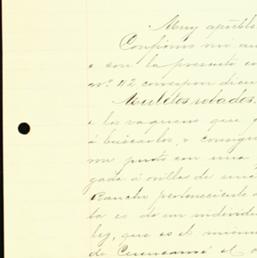 Muy apreble
Confirmo mi an
e con la presente co
nº 42 correspondien
Mulitos robados.
a los vaqueros que
á buscarlos, y consigu
un punto con una
gada á orillas de una
Rancho perteneciente a
ta es de un individu
ley, que es el mism
de